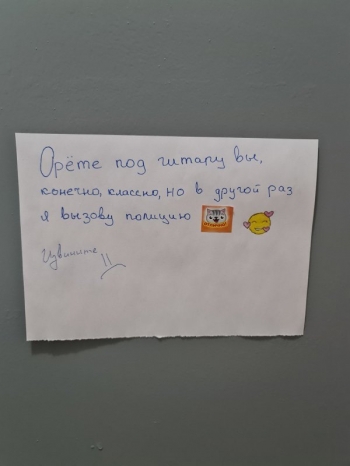 Орёте под гитару вы,
конечно, классно, но в другой раз
я вызову полицию
Извините